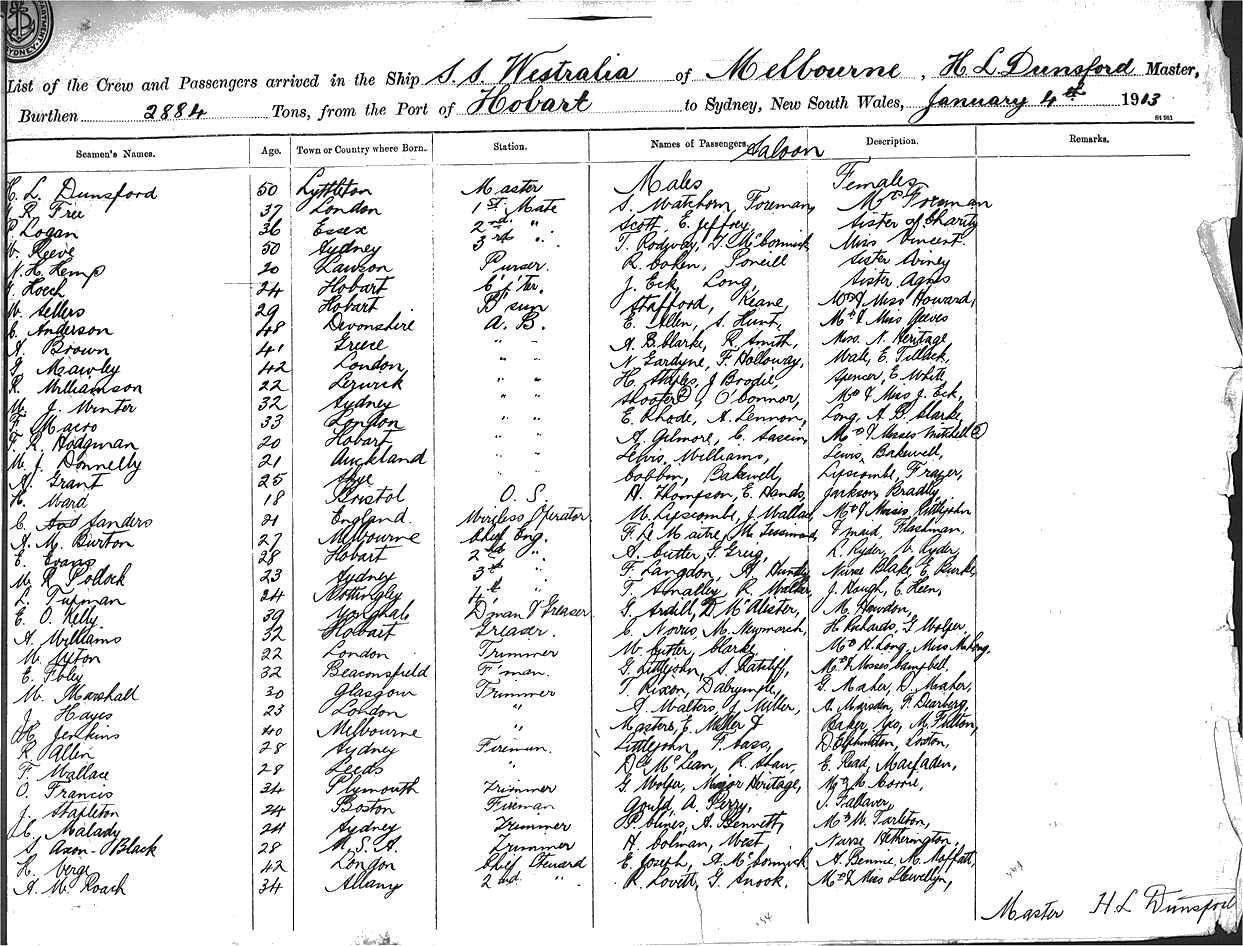 List of the Crew and Passengers arrived in the Ship S.S. Westralia of Melbourne, H L Dunsford Master,
Burthen 2884 Tons, from the Port of Hobart to Sydney, New South Wales, January 4th 1913
Seamen's Names. Age. Town or Country where Born. Station. Names of Passengers. Saloon Description. Remarks.
H. L. Dunsford 50 Lyttleton Master Males Females
R. Free 37 London 1st Mate S. Watchorn, Foreman, Mrs Foreman
P. Logan 36 Essex 2nd " Scott, E. Jeffrey, Sister of Charity
W. Reeve 50 Sydney 3rd " T. Rodway, McCormick Miss Vincent
N. H. Kemp 20 Lawson Purser. R. Cohen, Sister
24 Hobart C'p'ter. J. Eck, Long, Sister Agnes
W. Sellers 29 Hobart B'sun Stafford, Keane, Mrs & Miss Howard,
C. Anderson 48 Devonshire A. B. E. Allen, S. Hunt, Mrs & Miss Geeves
A. Brown 41 Greece " " A. B. Clarke, R. Smith, Miss. N. Heritage
G. Mawley 42 London " " N. Gardyne, F. Holloway, Wale, E. Tullack,
R. Williamson 22 Lerwick " " H. Staples, J Brodie Spencer, E. White
W. J. Winter 32 Sydney " " O'Connor, Mrs & Miss J. Eck,
F. Macro 33 London " " E. Rhode, A. Lennon, Long, A. B. Clarke,
F. R. Hodgman 20 Hobart " " A. Gilmore, C. Mrs & Misses Mitchell (2)
W. J. Donnelly 21 Auckland " " Lewis, Williams, Lewis, Bakewell,
A. Grant 25 Skye " " Cobbin, Bakewell, Lipscombe, Frazer,
H. Ward 18 Bristol O. S. A. Thompson, E. Hands, Jackson, Bradly,
C. Sanders 21 England. Wireless Operator W. Lipscombe, J. Wallace Mrs & Misses Littlejohn
A. M. Burton 27 Melbourne Chief Eng. F. Le Maitre, M. & maid, Flashman,
E. Evans 28 Hobart 2nd " A. Cutter, G. Greig, R. Ryder, V. Ryder
M. R. Pollock 23 Sydney 3rd " F. Langdon, Nurse Blake, E. Burke,
L. Tupman 24 Nottingley 4th " T. Smalley, R. Walker, J. Hough, E. Keen,
E. O. Kelly 39 Youghal D'man & Greaser G. Ardill, D. McAlister, M. Howdon,
A. Williams 32 Hobart Greaser. C. Novis, M. Newmarch, H. Richards, G. Wolfer,
W. 22 London Trimmer W. Cutter, Clarke, Mrs H. Long, Miss
E. Foley 32 Beaconsfield F'man. G. Littlejohn, S. Ratcliff, Mrs & Misses Campbell
W. Marshall 30 Glasgow Trimmer T. Rixon, Dalrymple, G. Maher, D. Maher,
J. Hayes 23 London " J. Walters, J Miller, A. Marsden, F. Dearberg,
H. Jenkins 40 Melbourne " Masters, E. Miller & Baker, M. Fulton,
R. Allen 28 Sydney Fireman. Littlejohn, T. Bass, D. Elphinston, Loxton,
F. Wallace 28 Leeds " Dr McLean, R. Shaw, E. Read, Macfaden,
O. Francis 34 Plymouth Trimmer G. Wolfer, Major Heritage, Mrs M. Corrie,
J. Stapleton 24 Boston Fireman Gould, A. Perry, J. Fallaver,
C. Malady 24 Sydney Trimmer P. Clines, A. Bennett, Mrs W. Tarleton,
S. Axon-Black 28 U.S.A. Trimmer H. Colman, West, Nurse Hetherington,
H. Verge 42 London Chief Steward E. Joseph, A. McCormick A. Bennie, M. Moffatt,
A. M. Roach 34 Albany 2nd " R. Lovett, G. Snook. Mrs & Miss Llewellyn,
Master H. L Dunsford